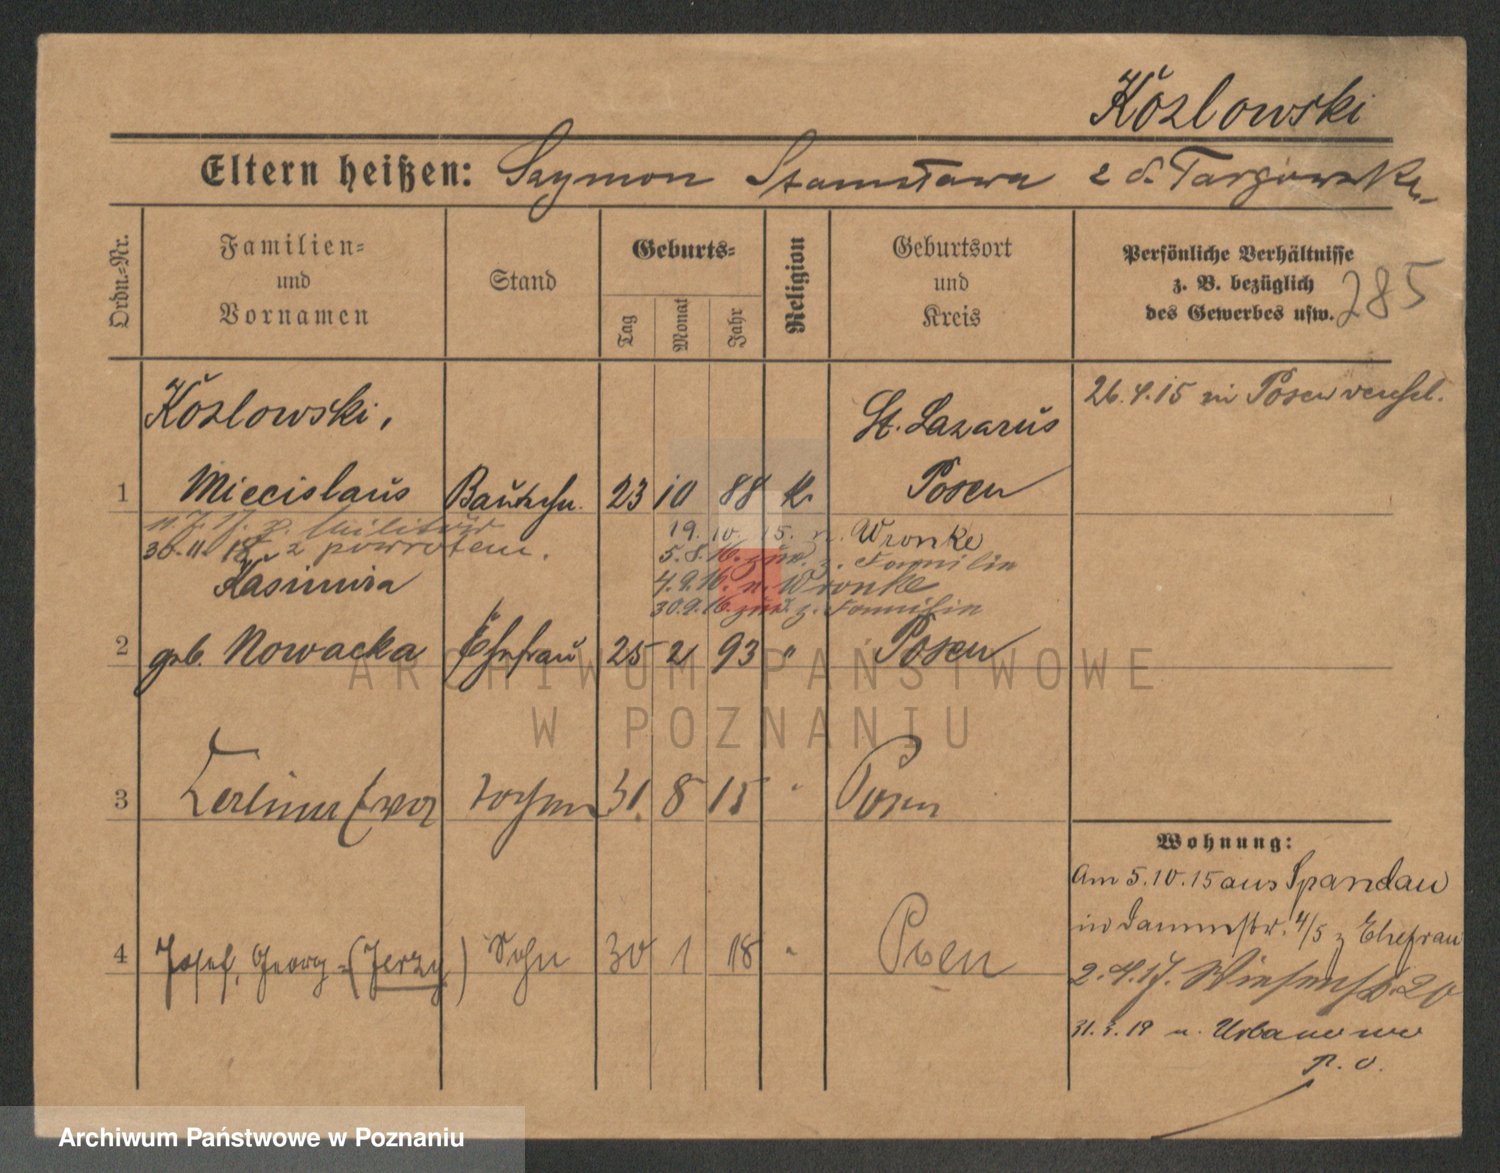 Kozlowski
Eltern heißen: Szymon Stanisława z d. Targowska
Ordn.-Nr.
Familien-
und
Vornamen
Stand
Geburts-
Tag
Monat
Jahr
Religion
Geburtsort
und
Kreis
Persönliche Verhältnisse
z. B. bezüglich
des Gewerbes usw.
285
Kozlowski,
St. Lazarus
26.4.15 in Posen verehel.
1 Miecislaus Bautechn. 23 10 88 k. Posen
30.11.18 z powrotem.
19.10.15. n. Wronke
5.8.16. zur. z. Familie
4.9.16. n. Wronke
30.9.16 zur. z. Familie
Kasimira
2 geb. Nowacka Ehefrau 25 2 93 " Posen
3 31. 8 15 " Posen
Wohnung:
Am 5.10.15 aus Spandau
in Dammstr. 4/5 z Ehefrau
4 Josef, Georg - (Jerzy) Sohn 30 1 18 " Posen
2.4.17. Wiesenstr. 20
31.3.19 n. Urbanowo
p. o.
ARCHIWUM PAŃSTWOWE
W POZNANIU
Archiwum Państwowe w Poznaniu